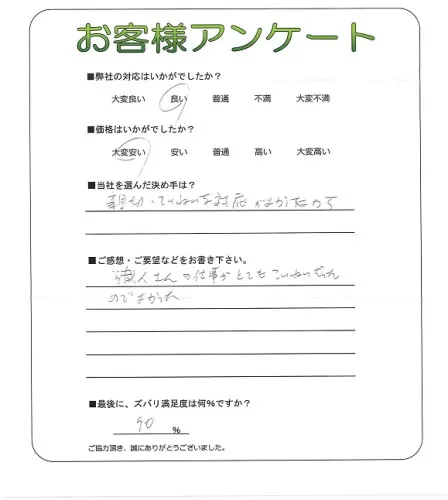 お客様アンケート
■弊社の対応はいかがでしたか?
大変良い 良い 普通 不満 大変不満
■価格はいかがでしたか?
大変安い 安い 普通 高い 大変高い
■当社を選んだ決め手は?
親切、ていねいな対応がよかったから
■ご感想・ご要望などをお書き下さい。
職人さんの仕事がとてもていねいだった
のでよかった
■最後に、ズバリ満足度は何%ですか?
90 %
ご協力頂き、誠にありがとうございました。